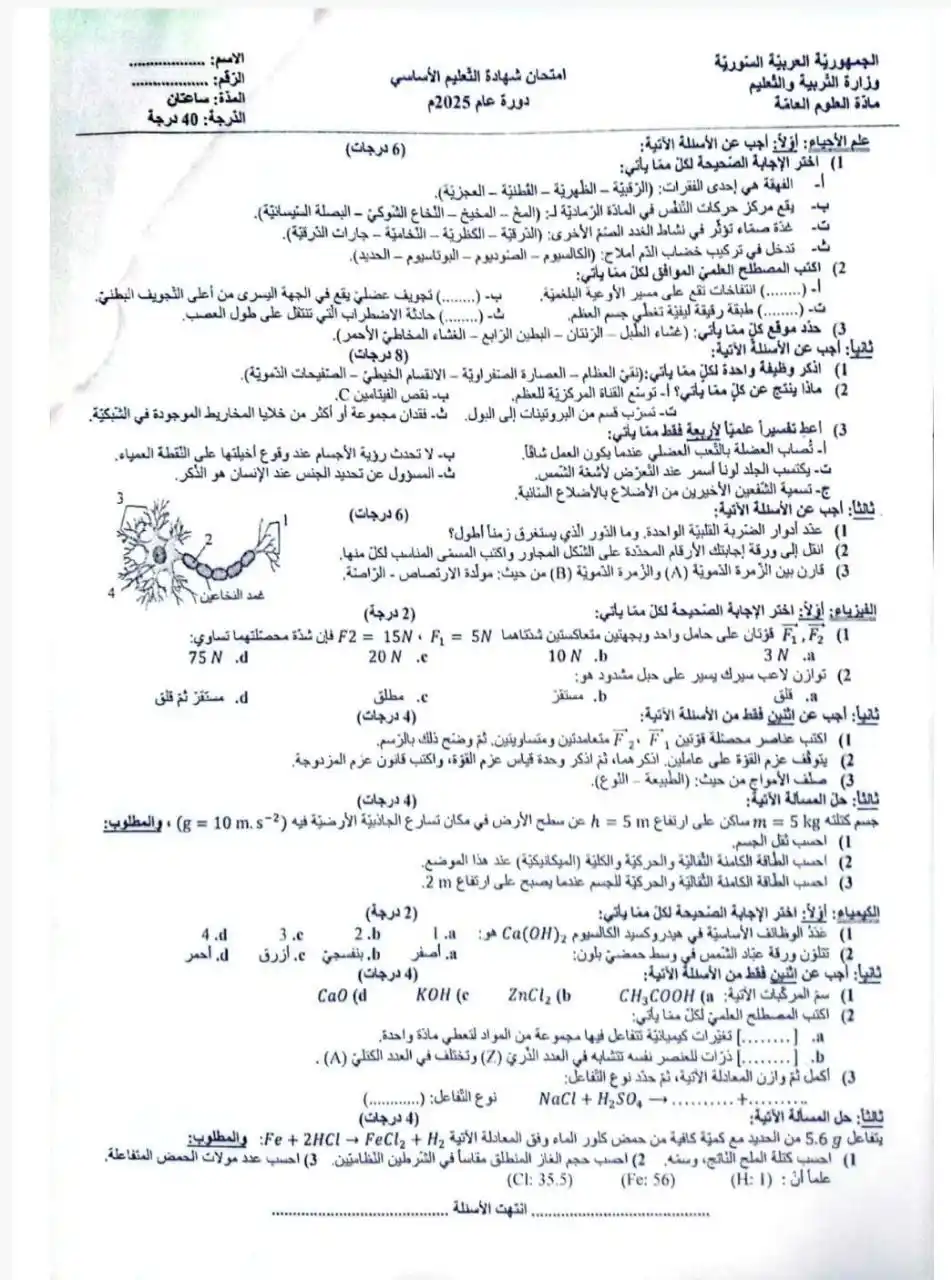 الجمهوريّة العربيّة السّوريّة
وزارة التّربية والتّعليم
مادّة العلوم العامّة
امتحان شهادة التّعليم الأساسي
دورة عام 2025م
الاسم: ..................
الرّقم: ..................
المدّة: ساعتان
الدّرجة: 40 درجة
علم الأحياء: أوّلاً: أجب عن الأسئلة الآتية: (6 درجات)
1) اختر الإجابة الصّحيحة لكلّ ممّا يأتي:
أ- الفهقة هي إحدى الفقرات: (الرّقبيّة – الظّهريّة – القطنيّة – العجزيّة).
ب- يقع مركز حركات التّنفّس في المادّة الرّماديّة لـ: (المخّ – المخيخ – النّخاع الشّوكيّ – البصلة السّيسائيّة).
ت- غدّة صمّاء تؤثّر في نشاط الغدد الصّمّ الأخرى: (الدّرقيّة – الكظريّة – النّخاميّة – جارات الدّرقيّة).
ث- تدخل في تركيب خضاب الدّم أملاح: (الكالسيوم – الصّوديوم – البوتاسيوم – الحديد).
2) اكتب المصطلح العلميّ الموافق لكلّ ممّا يأتي:
أ- (........) انتفاخات تقع على مسير الأوعية البلغميّة. ب- (........) تجويف عضليّ يقع في الجهة اليسرى من أعلى التّجويف البطنيّ.
ت- (........) طبقة رقيقة ليفيّة تغطّي جسم العظم. ث- (........) حادثة الاضطراب الّتي تنتقل على طول العصب.
3) حدّد موقع كلّ ممّا يأتي: (غشاء الطّبل – الرّئتان – البطين الرّابع – الغشاء المخاطيّ الأحمر).
ثانياً: أجب عن الأسئلة الآتية: (8 درجات)
1) اذكر وظيفة واحدة لكلّ ممّا يأتي:(نقيّ العظام – العصارة الصّفراويّة – الانقسام الخيطيّ – الصّفيحات الدّمويّة).
2) ماذا ينتج عن كلّ ممّا يأتي؟ أ- توسّع القناة المركزيّة للعظم. ب- نقص الفيتامين C.
ت- تسرّب قسم من البروتينات إلى البول. ث- فقدان مجموعة أو أكثر من خلايا المخاريط الموجودة في الشّبكيّة.
3) أعطِ تفسيراً علميّاً لأربعة فقط ممّا يأتي:
أ- تُصاب العضلة بالتّعب العضلي عندما يكون العمل شاقّاً. ب- لا تحدث رؤية الأجسام عند وقوع أخيلتها على النّقطة العمياء.
ت- يكتسب الجلد لوناً أسمر عند التّعرّض لأشعّة الشّمس. ث- المسؤول عن تحديد الجنس عند الإنسان هو الذّكر.
ج- تسمية الشّفعين الأخيرين من الأضلاع بالأضلاع السّائبة.
ثالثاً: أجب عن الأسئلة الآتية: (6 درجات)
1) عدّد أدوار الضّربة القلبيّة الواحدة. وما الدّور الذي يستغرق زمناً أطول؟
2) انقل إلى ورقة إجابتك الأرقام المحدّدة على الشّكل المجاور واكتب المسمّى المناسب لكلّ منها.
3) قارن بين الزّمرة الدّمويّة (A) والزّمرة الدّمويّة (B) من حيث: مولّدة الارتصاص – الرّاصّة.
3
1
2
4
غمد النخاعين
الفيزياء: أوّلاً: اختر الإجابة الصّحيحة لكلّ ممّا يأتي: (2 درجة)
1) F₁ , F₂ قوّتان على حامل واحد وبجهتين متعاكستين شدّتاهما F₁ = 5N ، F2 = 15N فإن شدّة محصّلتهما تساوي:
a. 3 N b. 10 N c. 20 N d. 75 N
2) توازن لاعب سيرك يسير على حبل مشدود هو:
a. قلق b. مستقرّ c. مطلق d. مستقرّ ثمّ قلق
ثانياً: أجب عن اثنين فقط من الأسئلة الآتية: (4 درجات)
1) اكتب عناصر محصّلة قوّتين F₁ ، F₂ متعامدتين ومتساويتين. ثمّ وضّح ذلك بالرّسم.
2) يتوقّف عزم القوّة على عاملين. اذكرهما، ثمّ اذكر وحدة قياس عزم القوّة، واكتب قانون عزم المزدوجة.
3) صنّف الأمواج من حيث: (الطّبيعة – النّوع).
ثالثاً: حلّ المسألة الآتية: (4 درجات)
جسم كتلته m = 5 kg ساكن على ارتفاع h = 5 m عن سطح الأرض في مكان تسارع الجاذبيّة الأرضيّة فيه (g = 10 m.s⁻²) ، والمطلوب:
1) احسب ثقل الجسم.
2) احسب الطّاقة الكامنة الثّقاليّة والحركيّة والكليّة (الميكانيكيّة) عند هذا الموضع.
3) احسب الطّاقة الكامنة الثّقاليّة والحركيّة للجسم عندما يصبح على ارتفاع 2 m.
الكيمياء: أوّلاً: اختر الإجابة الصّحيحة لكلّ ممّا يأتي: (2 درجة)
1) عَدَدُ الوظائف الأساسيّة في هيدروكسيد الكالسيوم Ca(OH)₂ هو: a. 1 b. 2 c. 3 d. 4
2) تتلوّن ورقة عبّاد الشّمس في وسط حمضيّ بلون: a. أصفر b. بنفسجيّ c. أزرق d. أحمر
ثانياً: أجب عن اثنين فقط من الأسئلة الآتية: (4 درجات)
1) سمِّ المركّبات الآتية: a) CH₃COOH b) ZnCl₂ c) KOH d) CaO
2) اكتب المصطلح العلميّ لكلّ ممّا يأتي:
a. [........] تغيّرات كيميائيّة تتفاعل فيها مجموعة من المواد لتعطي مادّة واحدة.
b. [........] ذرّات للعنصر نفسه تتشابه في العدد الذّريّ (Z) وتختلف في العدد الكتليّ (A) .
3) أكمل ثمّ وازن المعادلة الآتية، ثمّ حدّد نوع التّفاعل:
NaCl + H₂SO₄ → .......... + .......... نوع التّفاعل: (............)
ثالثاً: حل المسألة الآتية: (4 درجات)
يتفاعل 5.6 g من الحديد مع كميّة كافية من حمض كلور الماء وفق المعادلة الآتية Fe + 2HCl → FeCl₂ + H₂: والمطلوب:
1) احسب كتلة الملح النّاتج، وسمّه. 2) احسب حجم الغاز المنطلق مقاساً في الشّرطين النّظاميّين. 3) احسب عدد مولات الحمض المتفاعلة.
علماً أنّ : (H: 1) (Fe: 56) (Cl: 35.5)
........................ انتهت الأسئلة ........................